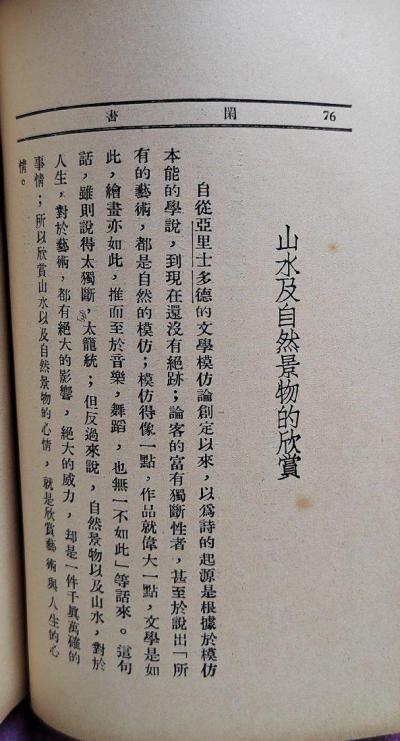 閑書
76
山水及自然景物的欣賞
自從亞里士多德的文學模仿論創定以來，以爲詩的起源是根據於模仿
本能的學說，到現在還沒有絕跡；論客的富有獨斷性者，甚至於說出「所
有的藝術，都是自然的模仿；模仿得像一點，作品就偉大一點，文學是如
此，繪畫亦如此，推而至於音樂，舞蹈，也無一不如此」等話來。這句
話，雖則說得太獨斷，太籠統；但反過來說，自然景物以及山水，對於
人生，對於藝術，都有絕大的影響，絕大的威力，却是一件千眞萬確的
事情；所以欣賞山水以及自然景物的心情，就是欣賞藝術與人生的心
情。